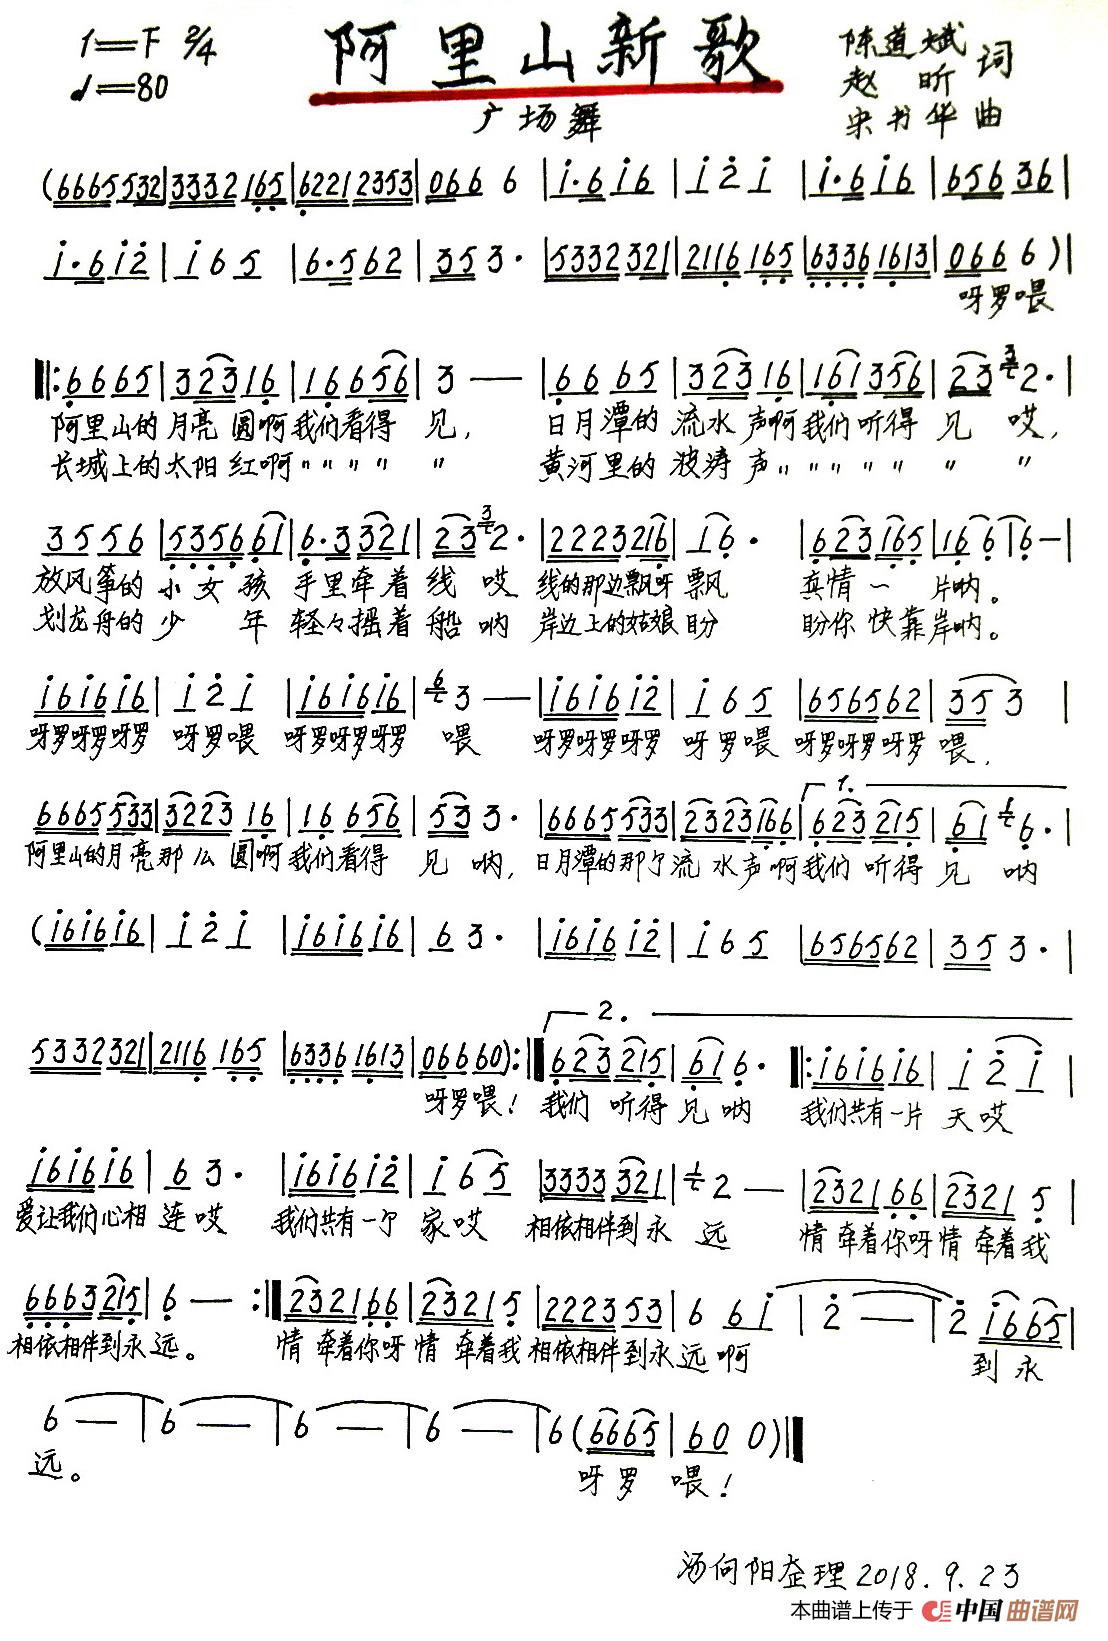 1=F 2/4
♩=80
阿里山新歌
广场舞
陈道斌
赵昕 词
宋书华 曲
(6665532|3332165|6221 2353|066 6|i·6i6|i 2 i|i·6i6|656 36|
i·6i2|i 6 5|6·562|35 3·|5332321|2116 165|6336 1613|066 6)|
呀罗喂
‖:6 6 6 5|32316|16656|3 —|6 6 6 5|323 16|161356|23 2·|
阿里山的月亮 圆啊我们看得 见, 日月潭的 流水 声啊我们听得 见 哎,
长城上的太阳 红啊〃〃〃〃 〃 黄河里的 波涛 声〃〃〃〃〃 〃 〃
3 5 5 6|535661|6·3321|23 2·|222321 6|1 6·|623165|16 6|6 —|
放风筝的 小女孩 手里牵着 线 哎 线的那边飘呀 飘 真情一 片呐。
划龙舟的 少 年 轻々摇着 船 呐 岸边上的姑娘盼 盼你 快靠岸呐。
i6i6i6|i 2 i|i6i6i6|3 —|i6i6i2|i 6 5|656562|35 3|
呀罗呀罗呀罗 呀罗喂 呀罗呀罗呀罗 喂 呀罗呀罗呀罗 呀罗喂 呀罗呀罗呀罗 喂,
1.
6665533|3223 16|16 656|53 3·|6665533|2323166|623215|61 6·|
阿里山的月亮那么 圆啊我们看得 见 呐,日月潭的那个流 水声啊我们 听得 见 呐
(i6i6i6|i 2 i|i6i6i6|6 3·|i6i6i2|i 6 5|656562|35 3·|
2.
5332321|2116 165|6336 1613|06660):‖623215|61 6·‖:i6i6i6|i 2 i|
呀罗喂! 我们 听得 见 呐 我们共有一片 天哎
i6i6i6|6 3·|i6i6i2|i 6 5|3333321|2 —|232166|2321 5|
爱让我们心相 连 哎 我们共有一个 家哎 相依相伴到永 远 情 牵着你呀情 牵着我
6663215|6 — :‖232166|2321 5|222353|6 6i|2 —|2 i665|
相依相伴到永 远。 情 牵着你呀 情 牵着我 相依相伴到永 远啊 到 永
6 —|6 —|6 —|6 —|6 (6665|60 0)‖
远。 呀 罗 喂!
汤向阳整理2018.9.23
本曲谱上传于 中国曲谱网